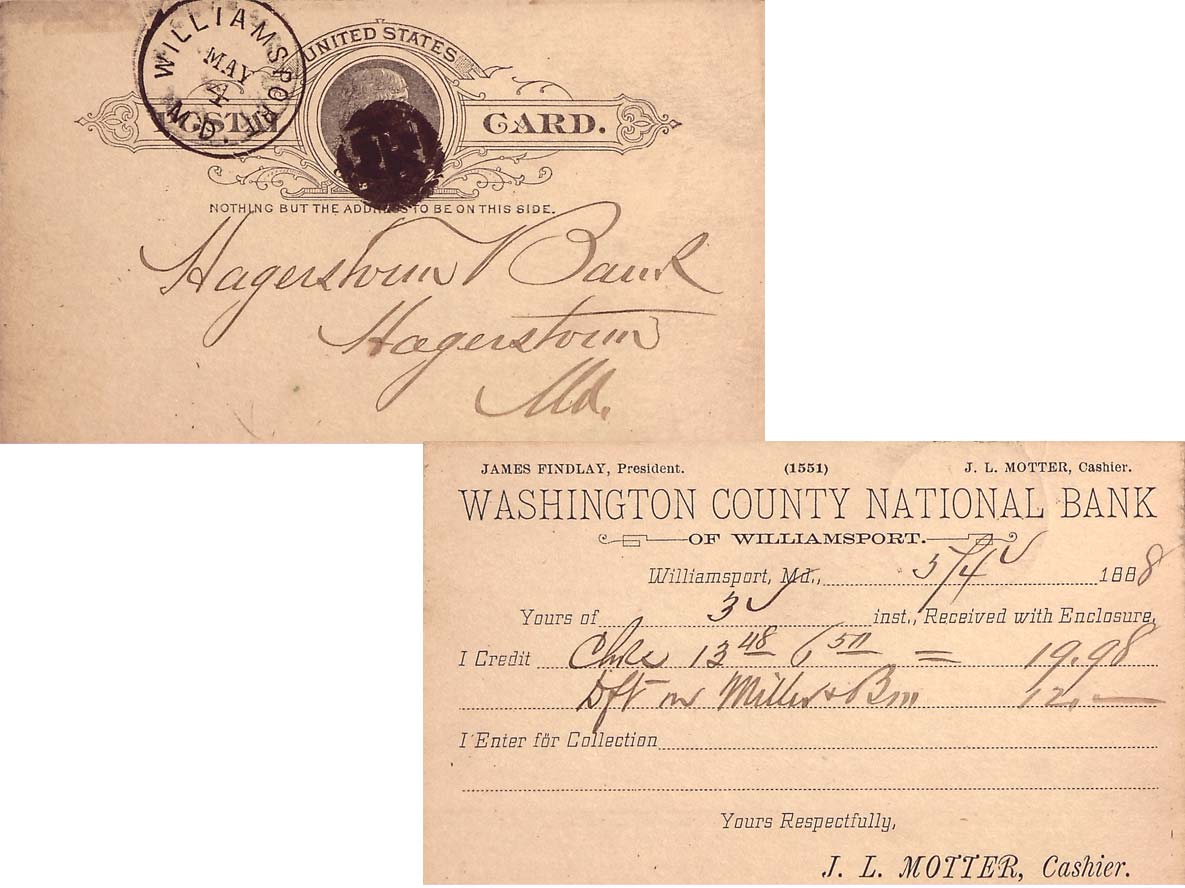 WILLIAMSPORT
MAY
4
MD.
UNITED STATES
POSTAL CARD.
NOTHING BUT THE ADDRESS TO BE ON THIS SIDE.
Hagerstown Bank
Hagerstown
Md.
JAMES FINDLAY, President. (1551) J. L. MOTTER, Cashier.
WASHINGTON COUNTY NATIONAL BANK
OF WILLIAMSPORT.
Williamsport, Md., 5/4 1888
Yours of 3 inst., Received with Enclosure,
I Credit Chks 13 48 6 50 = 19.98
Dft on Miller & Bro 12.—
I Enter för Collection
Yours Respectfully,
J. L. MOTTER, Cashier.